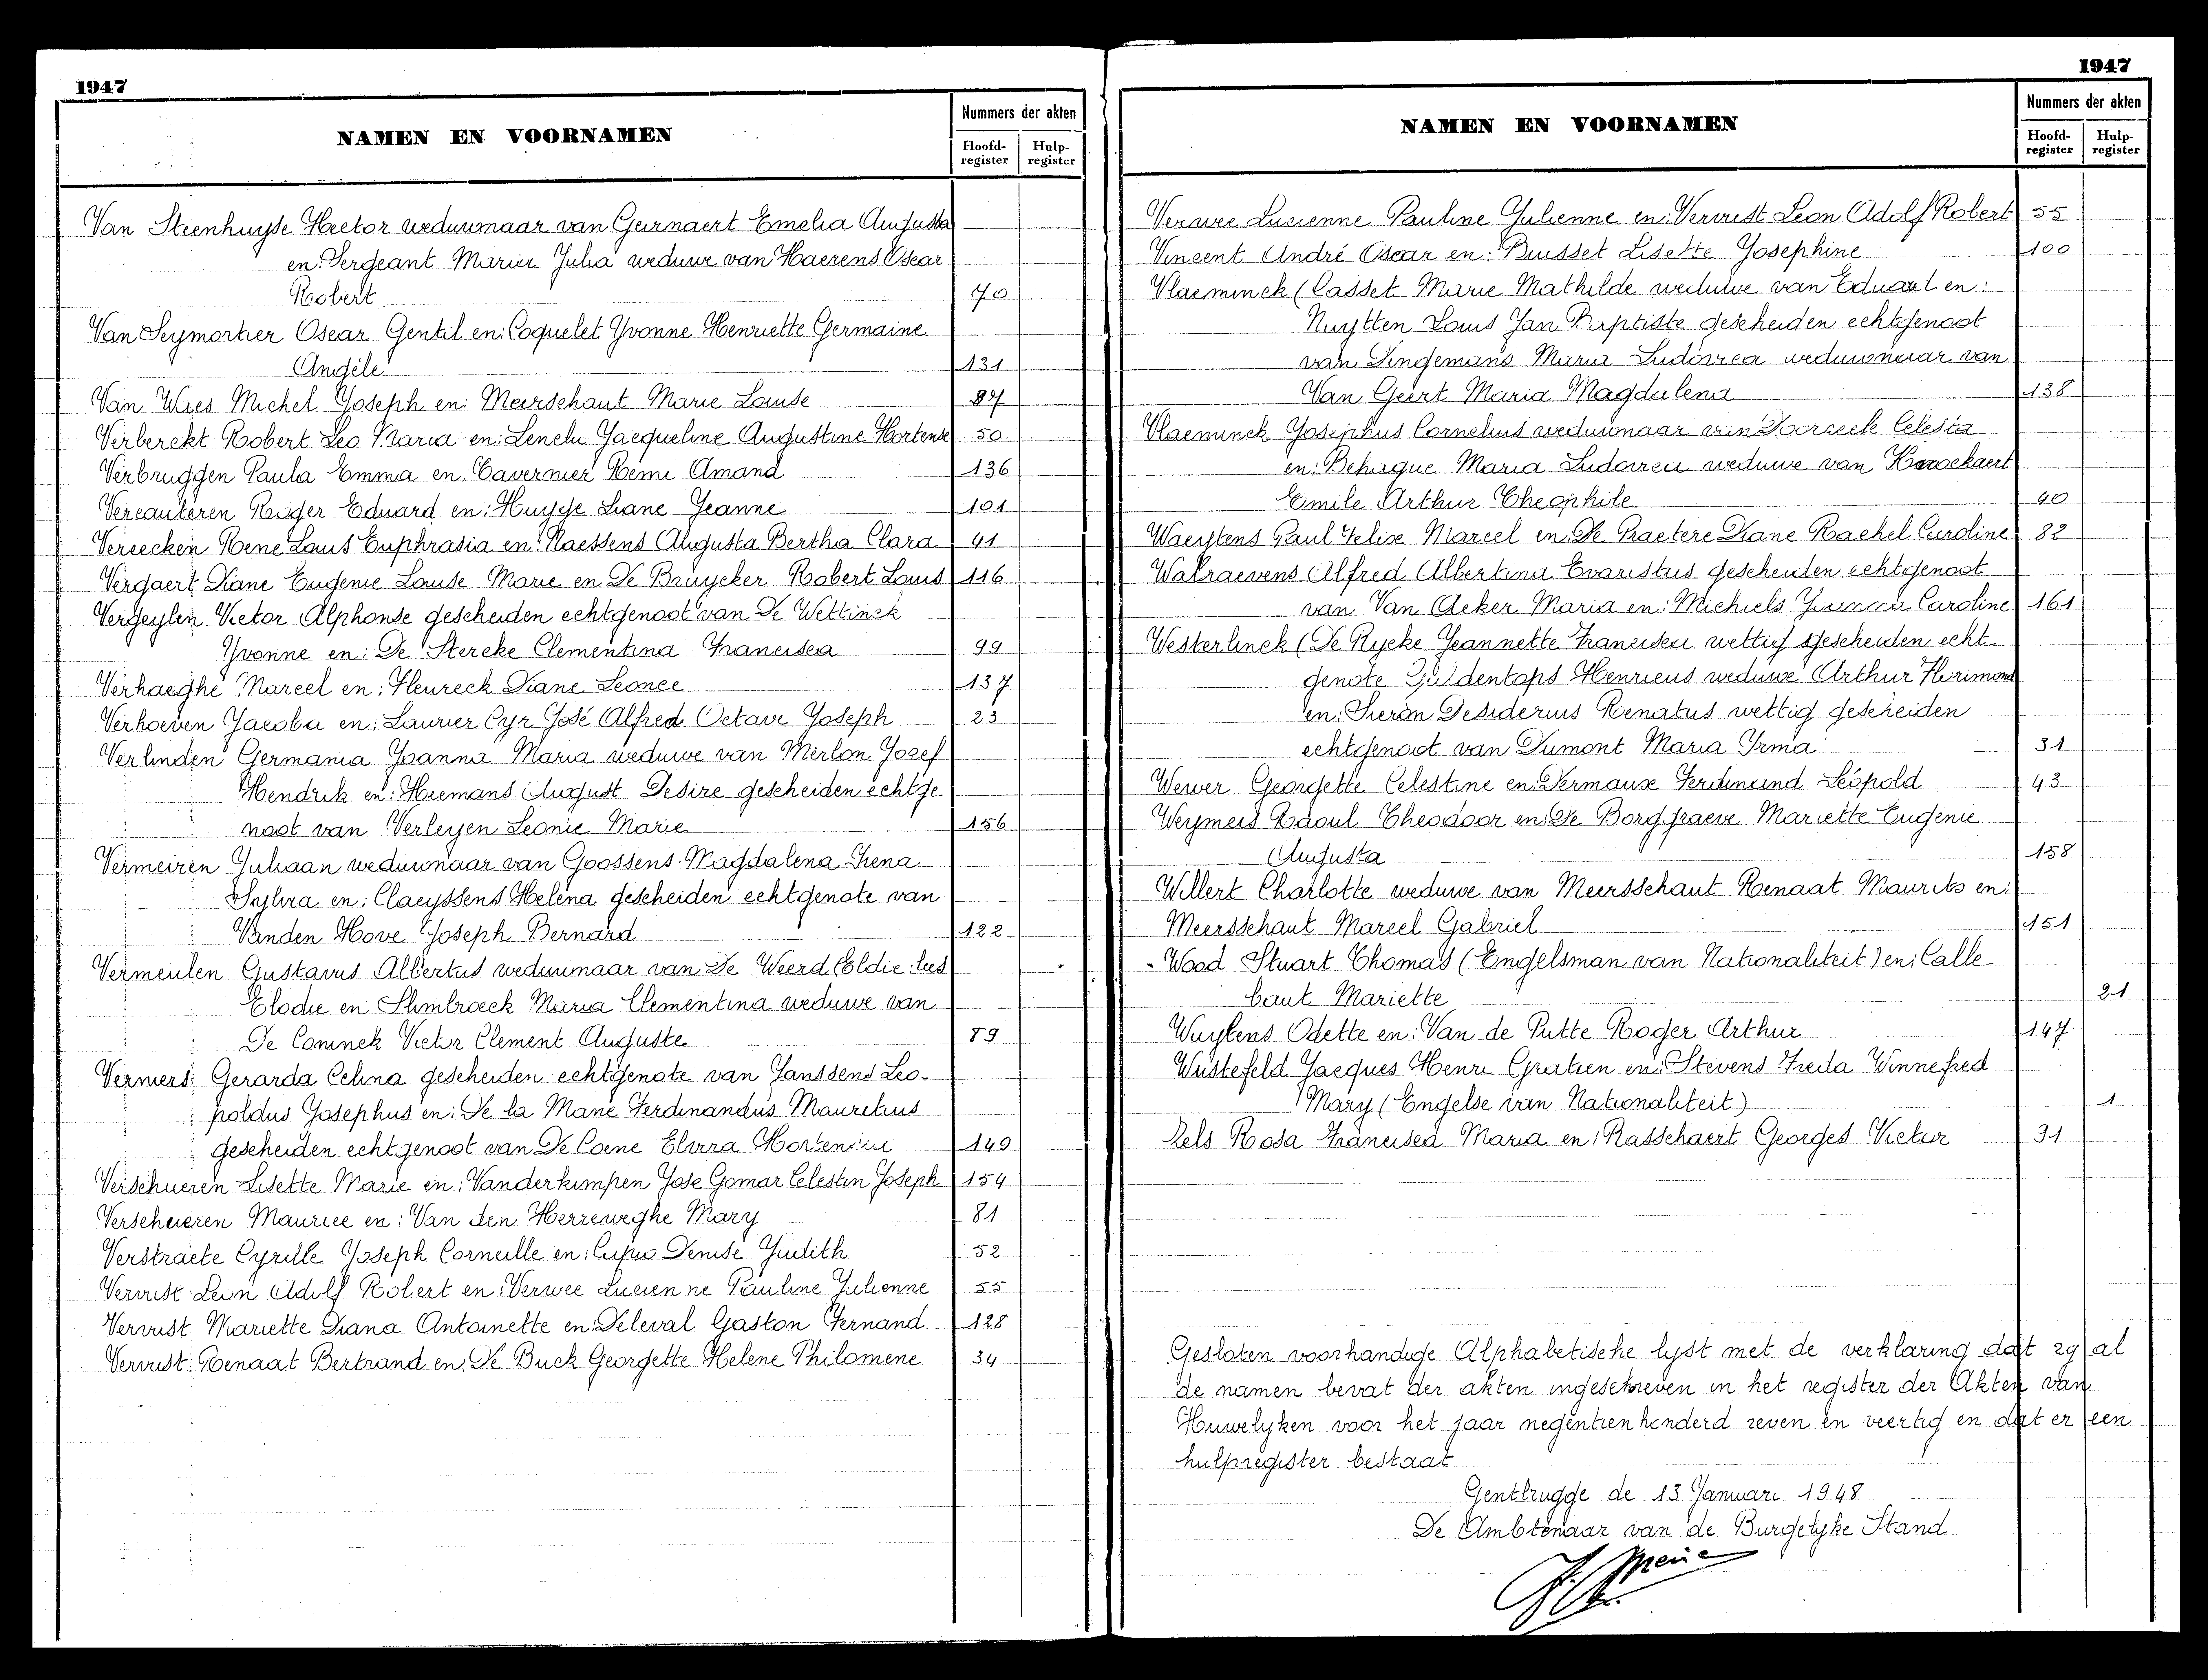 1947
NAMEN EN VOORNAMEN
Nummers der akten
Hoofd-register
Hulp-register
Van Steenhuyse Hector weduwnaar van Geirnaert Emelia Augusta
en: Sergeant Maria Julia weduwe van Haerens Oscar
Robert 70
Van Seymortier Oscar Gentil en: Coquelet Yvonne Henriette Germaine
Angèle 131
Van Waes Michel Joseph en: Meerschaut Marie Louise 87
Verberckt Robert Leo Maria en: Jacqueline Augustine Hortense 50
Verbruggen Paula Emma en: Tavernier Remi Amand 136
Vercauteren Roger Eduard en: Huyge Liane Jeanne 101
Vereecken Rene Louis Euphrasia en: Naessens Augusta Bertha Clara 41
Vergaert Diane Eugenie Louise Marie en De Bruycker Robert Louis 116
Vergeylen Victor Alphonse gescheiden echtgenoot van De Wettinck
Yvonne en: De Stercke Clementina Francisca 99
Verhaeghe Marcel en: Fleureck Diane Leonce 137
Verhoeven Jacoba en: Laurier Cyr José Alfred Octave Joseph 23
Verlinden Germania Joanna Maria weduwe van Merlon Jozef
Hendrik en: Hiemans August Desire gescheiden echtge
noot van Verleyen Leonie Marie 156
Vermeiren Juliaan weduwnaar van Goossens Magdalena Irena
Sylvia en: Claeyssens Helena gescheiden echtgenote van
Vanden Hove Joseph Bernard 122
Vermeulen Gustavus Albertus weduwnaar van De Weerd (Eldie: lees
Elodie en Slimbroeck Maria Clementina weduwe van
De Coninck Victor Clement Auguste 89
Vermers Gerarda Celina gescheiden echtgenote van Janssens Leo-
poldus Josephus en: De la Mane Ferdinandus Mauritius
gescheiden echtgenoot van De Coene Elvira Hortensia 149
Verschueren Lisette Marie en: Vanderkimpen Jose Gomar Celestin Joseph 154
Verscheieren Maurice en: Van den Herreweghe Mary 81
Verstraete Cyrille Joseph Corneille en: Denise Judith 52
Vervust Leon Adolf Robert en: Verwee Lucienne Pauline Julienne 55
Vervust Mariette Diana Antoinette en: Deleval Gaston Fernand 128
Vervust Renaat Bertrand en: De Buck Georgette Helene Philomene 34
1947
NAMEN EN VOORNAMEN
Nummers der akten
Hoofd-register
Hulp-register
Verwee Lucienne Pauline Julienne en: Vervust Leon Adolf Robert 55
Vincent André Oscar en: Busset Lisette Josephine 100
Vlaeminck (Casset Marie Mathilde weduwe van Eduard en:
Nuytten Louis Jan Baptiste gescheiden echtgenoot
van Dingemans Maria Ludovica weduwnaar van
Van Geert Maria Magdalena 138
Vlaeminck Josephus Cornelius weduwnaar van Celesta
en: Behague Maria Ludovica weduwe van
Emile Arthur Theophile 40
Waeytens Paul Felix Marcel en: De Praetere Diane Rachel Caroline 82
Walraevens Alfred Albertina Evaristus gescheiden echtgenoot
van Van Acker Maria en: Michiels Caroline 161
Westerlinck (De Rycke Jeannette Francisca wettig gescheiden echt-
genote Guldentops Henricus weduwe Arthur Florimond
en: Sieron Desiderius Renatus wettig gescheiden
echtgenoot van Dumont Maria Irma 31
Wewer Georgette Celestine en: Dermaux Ferdinand Leopold 43
Weymeis Raoul Theodoor en: De Borggraeve Mariette Eugenie
Augusta 158
Willert Charlotte weduwe van Meersschaut Renaat Maurits en:
Meersschaut Marcel Gabriel 151
Wood Stuart Thomas (Engelsman van Nationaliteit) en: Calle-
baut Mariette 21
Wuytens Odette en: Van de Putte Roger Arthur 147
Wüstefeld Jacques Henri Gratien en: Stevens Freda Winnefred
Mary (Engelse van Nationaliteit) 1
Zels Rosa Francisca Maria en: Rasschaert Georges Victor 91
Gesloten voorhandige Alphabetische lyst met de verklaring dat zy al
de namen bevat der akten ingeschreven in het register der Akten van
Huwelyken voor het jaar negentienhonderd zeven en veertig en dat er een
hulpregister bestaat
Gentbrugge de 13 Januari 1948
De Ambtenaar van de Burgelyke Stand